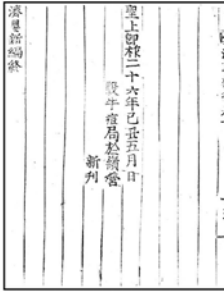 皇上卽祚二十六年己丑五月日
設牛痘局於嶺營
新刊
濟嬰新編終